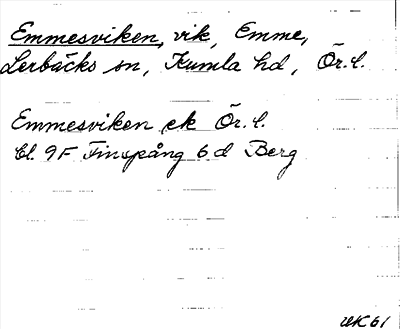 Emmesviken, vik, Emme,
Lerbäcks sn, Kumla hd, Ör. l.
Emmesviken ek Ör. l.
Bl. 9F Finspång 6 d Berg
UK 61